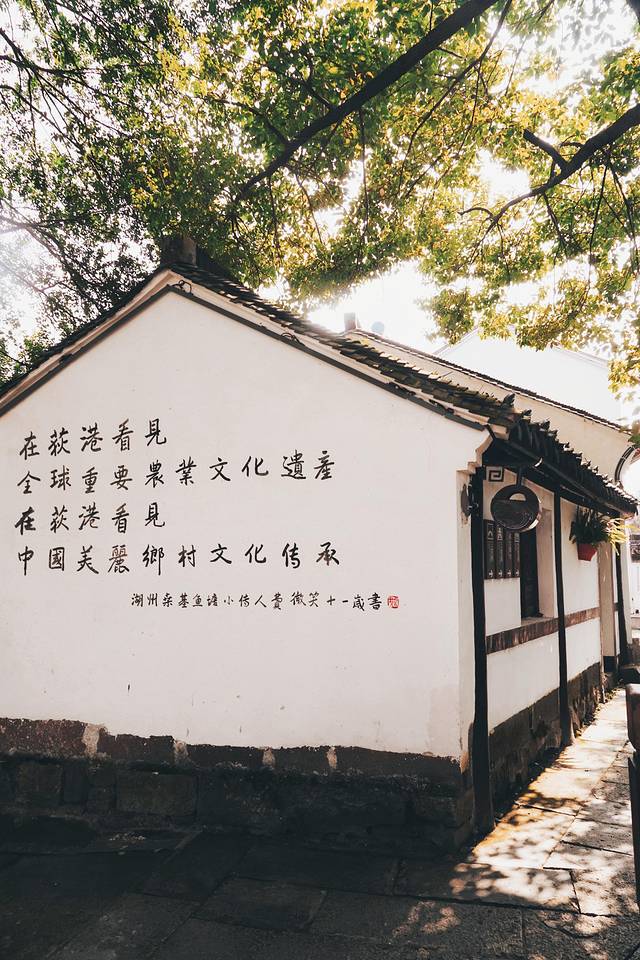 在荻港看見
全球重要農業文化遺産
在荻港看見
中國美麗鄉村文化传承
湖州桑基鱼塘小传人費微笑十一歲書